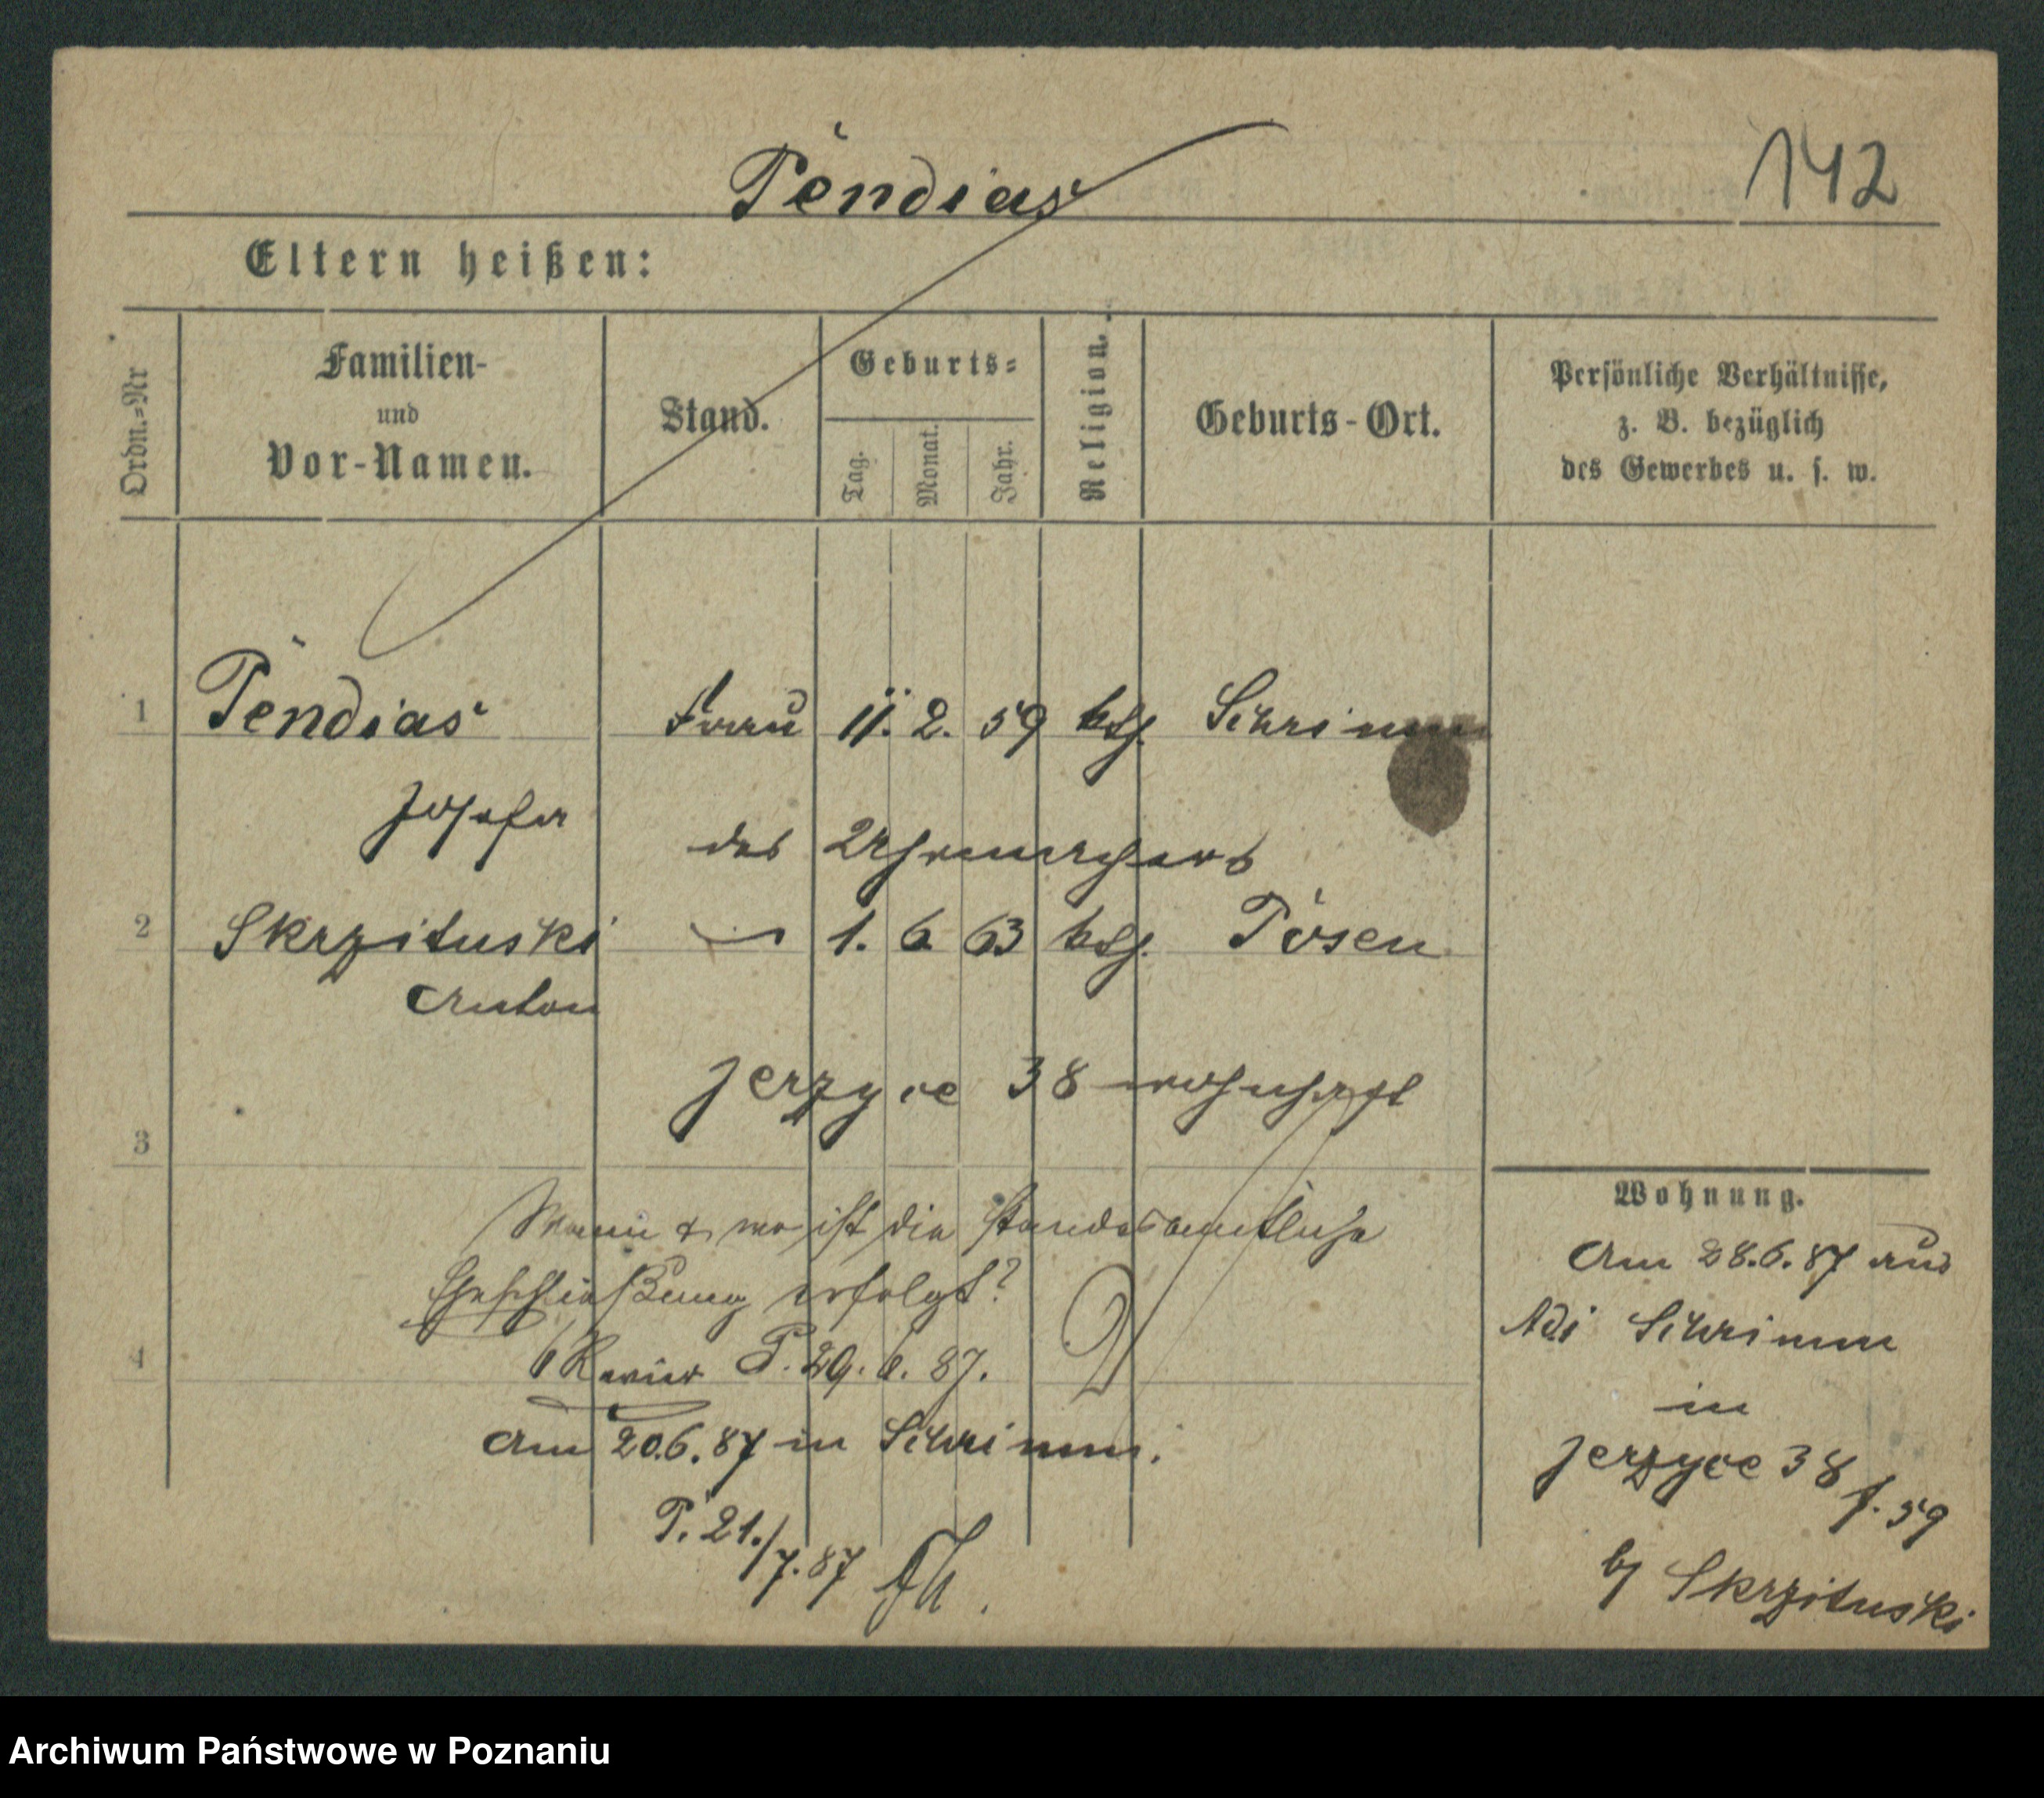 Pendias
142
Eltern heißen:
Ordn.=Nr
Familien-
und
Vor-Namen.
Stand.
Geburts=
Tag.
Monat.
Jahr.
Religion.
Geburts-Ort.
Persönliche Verhältnisse,
z. B. bezüglich
des Gewerbes u. s. w.
1 Pendias Frau 11. 2. 59 kth. Schrimm
Josefa
des Uhrmachers
2 Skrzituski 1. 6 63 kth. Posen
Anton
Jerzyce 38 wohnhaft
3
Wann & wo ist die standesamtliche
Eheschließung erfolgt?
4 Revier P. 29. 6. 87.
am 20.6.87 in Schrimm.
P. 21./7.87
Wohnung.
Am 28.6.87 aus
Schrimm
in
Jerzyce 38
f. 59
by Skrzituski
Archiwum Państwowe w Poznaniu